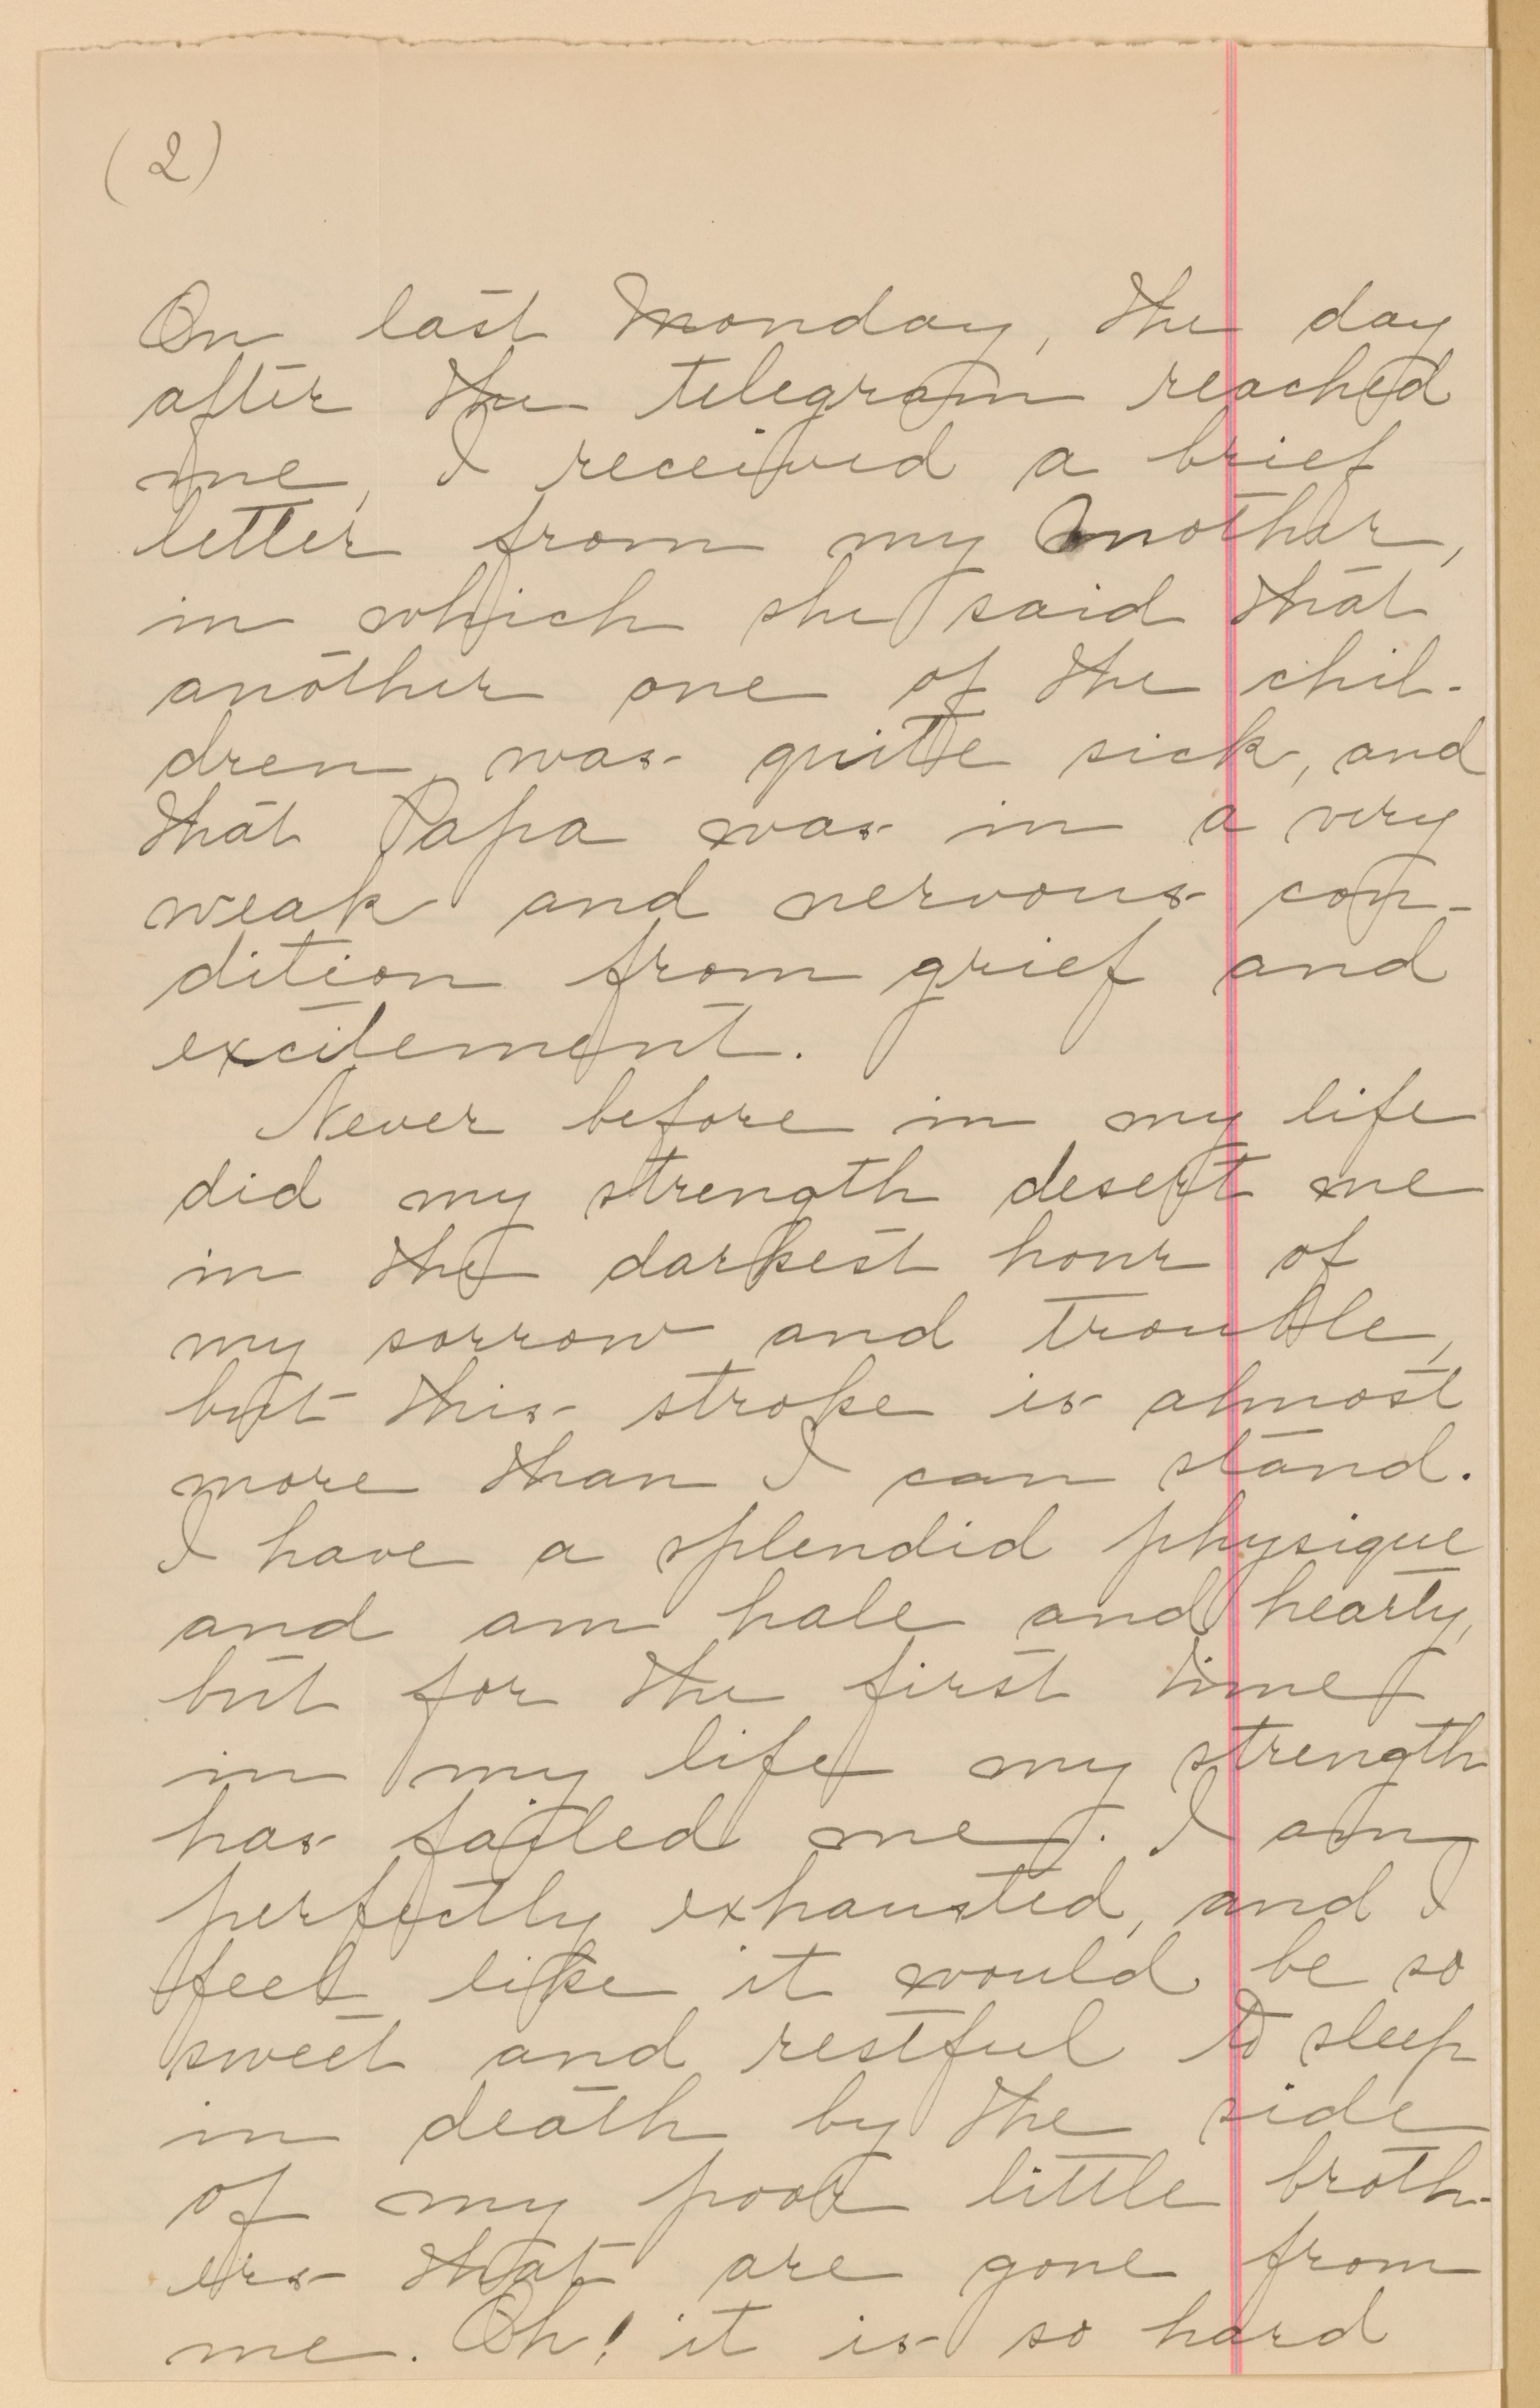 (2)
On last Monday, the day
after the telegram reached
me, I received a brief
letter from my Mother,
in which she said that
another one of the chil-
dren was quite sick, and
that Papa was in a very
weak and nervous con-
dition from grief and
excitement.
Never before in my life
did my strength desert me
in the darkest hour of
my sorrow and trouble,
but this stroke is almost
more than I can stand.
I have a splendid physique
and am hale and hearty,
but for the first time
in my life my strength
has failed me. I am
perfectly exhausted, and I
feel like it would be so
sweet and restful to sleep
in death by the side
of my poor little broth-
ers that are gone from
me. Oh! it is so hard